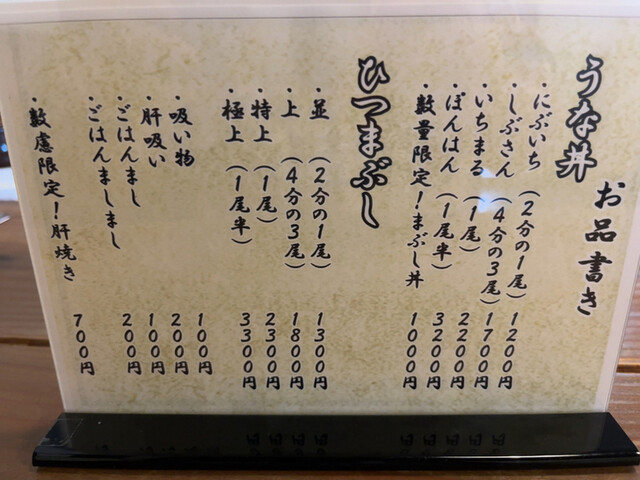 お品書き
うな丼
・にぶいち（２分の１尾）１２００円
・しぶさん（４分の３尾）１７００円
・いちまる（１尾）２２００円
・ぽんはん（１尾半）３２００円
・数量限定！まぶし丼 １０００円
ひつまぶし
・並（２分の１尾）１３００円
・上（４分の３尾）１８００円
・特上（１尾）２３００円
・極上（１尾半）３３００円
・吸い物 １００円
・肝吸い ２００円
・ごはんまし １００円
・ごはんましまし ２００円
・数慮限定！肝焼き ７００円